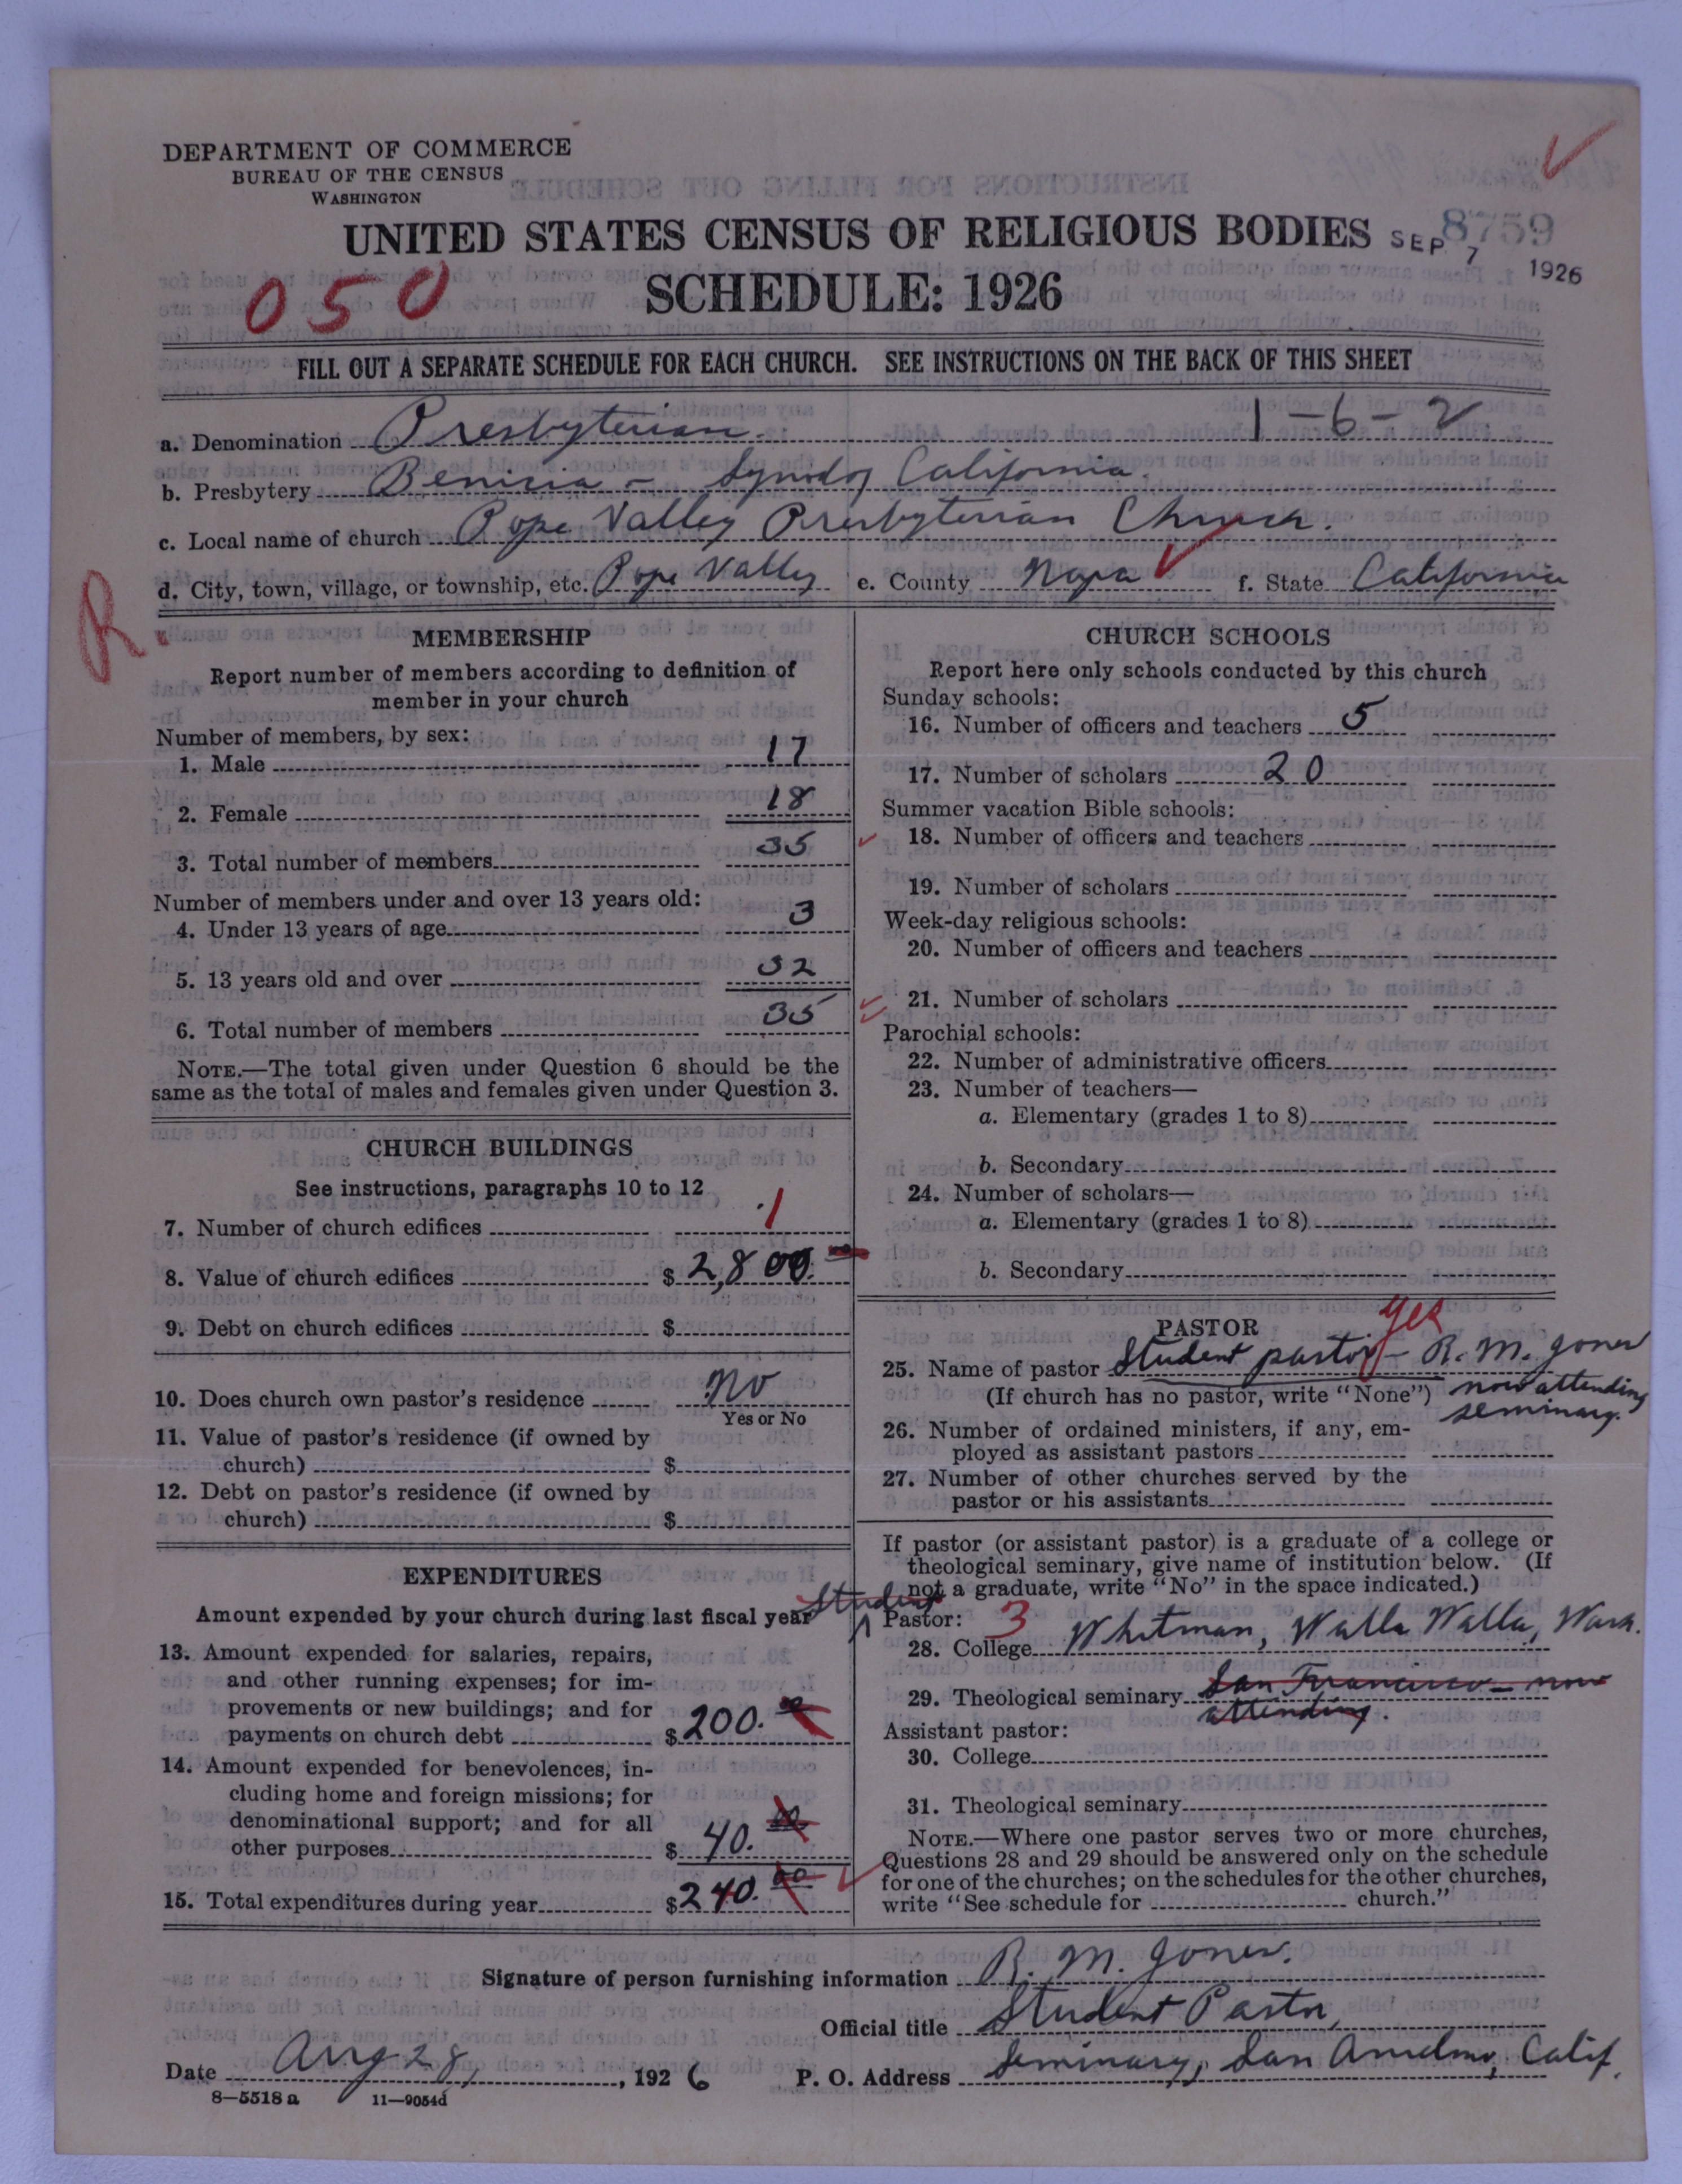 DEPARTMENT OF COMMERCE
BUREAU OF THE CENSUS
WASHINGTON
UNITED STATES CENSUS OF RELIGIOUS BODIES
8759
SEP 7 1926
050
SCHEDULE: 1926
FILL OUT A SEPARATE SCHEDULE FOR EACH CHURCH. SEE INSTRUCTIONS ON THE BACK OF THIS SHEET
a. Denomination Presbyterian. 1-6-2
b. Presbytery Benicia - Synod of California.
c. Local name of church Pope Valley Presbyterian Church.
d. City, town, village, or township, etc. Pope Valley e. County Napa f. State California
R.
MEMBERSHIP
Report number of members according to definition of
member in your church
Number of members, by sex:
1. Male 17
2. Female 18
3. Total number of members 35
Number of members under and over 13 years old:
4. Under 13 years of age 3
5. 13 years old and over 32
6. Total number of members 35
NOTE.—The total given under Question 6 should be the
same as the total of males and females given under Question 3.
CHURCH BUILDINGS
See instructions, paragraphs 10 to 12
7. Number of church edifices 1
8. Value of church edifices $ 2,800.
9. Debt on church edifices $
10. Does church own pastor's residence No
Yes or No
11. Value of pastor's residence (if owned by
church) $
12. Debt on pastor's residence (if owned by
church) $
EXPENDITURES
Amount expended by your church during last fiscal year
13. Amount expended for salaries, repairs,
and other running expenses; for im-
provements or new buildings; and for
payments on church debt $ 200. 00
14. Amount expended for benevolences, in-
cluding home and foreign missions; for
denominational support; and for all
other purposes $ 40. 00
15. Total expenditures during year $ 240. 00
CHURCH SCHOOLS
Report here only schools conducted by this church
Sunday schools:
16. Number of officers and teachers 5
17. Number of scholars 20
Summer vacation Bible schools:
18. Number of officers and teachers
19. Number of scholars
Week-day religious schools:
20. Number of officers and teachers
21. Number of scholars
Parochial schools:
22. Number of administrative officers
23. Number of teachers—
a. Elementary (grades 1 to 8)
b. Secondary
24. Number of scholars—
a. Elementary (grades 1 to 8)
b. Secondary
PASTOR
yes
25. Name of pastor Student pastor - R. M. Jones
(If church has no pastor, write "None") now attending
seminary.
26. Number of ordained ministers, if any, em-
ployed as assistant pastors
27. Number of other churches served by the
pastor or his assistants
If pastor (or assistant pastor) is a graduate of a college or
theological seminary, give name of institution below. (If
not a graduate, write "No" in the space indicated.)
Student
Pastor: 3
28. College Whitman, Walla Walla, Wash.
29. Theological seminary San Francisco - now
attending.
Assistant pastor:
30. College
31. Theological seminary
NOTE.—Where one pastor serves two or more churches,
Questions 28 and 29 should be answered only on the schedule
for one of the churches; on the schedules for the other churches,
write "See schedule for church."
Signature of person furnishing information R. M. Jones.
Official title Student Pastor,
Date Aug 28, 1926 P. O. Address Seminary, San Anselmo, Calif.
8—5518 a 11—9054d